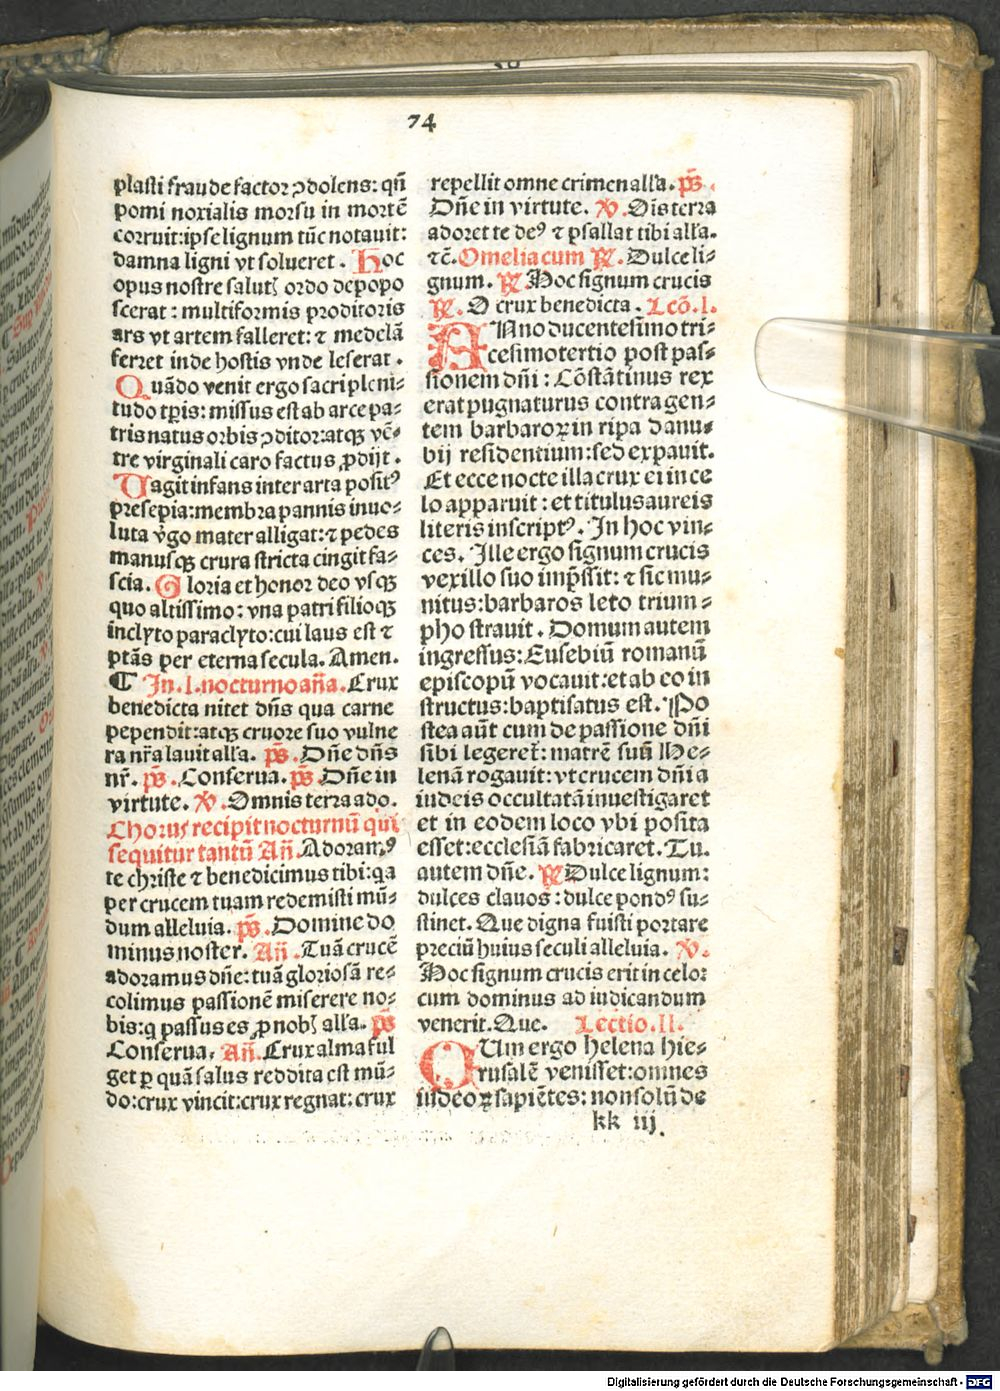 74
plasti fraude factor ꝯdolens: qn̄
pomi noxialis morsu in mortē
corruit: ipse lignum tūc notauit:
damna ligni vt solueret. Hoc
opus nostre saluť ordo depopo
scerat: multiformis proditoris
ars vt artem falleret: ⁊ medelā
ferret inde hostis vnde leserat.
Quādo venit ergo sacri pleni⸗
tudo tp̄is: missus est ab arce pa⸗
tris natus orbis ꝯditor: atqꝫ vē⸗
tre virginali caro factus ꝓdijt.
Vagit infans inter arta positꝰ
presepia: membra pannis inuo⸗
luta v̄go mater alligat: ⁊ pedes
manusqꝫ crura stricta cingit fa⸗
scia. Gloria et honor deo vsqꝫ
quo altissimo: vna patri filioqꝫ
inclyto paraclyto: cui laus est ⁊
ptās per eterna secula. Amen.
¶ In .I. nocturno an̄a. Crux
benedicta nitet dn̄s qua carne
pependit: atqꝫ cruore suo vulne
ra nr̄a lauit alľa. ps̄. Dn̄e dn̄s
nr̄. ps̄. Conserua. ps̄. Dn̄e in
virtute. ℣. Omnis terra ado.
Chorus recipit nocturnū qui
sequitur tantū An̄. Adoramꝰ
te christe ⁊ benedicimus tibi: qa
per crucem tuam redemisti mū⸗
dum alleluia. ps̄. Domine do
minus noster. An̄. Tuā crucē
adoramus dn̄e: tuā gloriosā re⸗
colimus passionē miserere no⸗
bis: q passus es ꝓ nobꝭ alľa. ps̄
Conserua. An̄. Crux alma ful
get ꝑ quā salus reddita est mū⸗
do: crux vincit: crux regnat: crux
repellit omne crimen alľa. ps̄.
Dn̄e in virtute. ℣. Ois terra
adoret te deꝰ ⁊ psallat tibi alľa.
⁊c̄. Omelia cum ℟. Dulce li⸗
gnum. ℟ Hoc signum crucis
℟. O crux benedicta. Lcō. I.
ANno ducentesimo tri⸗
cesimotertio post pas⸗
sionem dn̄i: Cōstātinus rex
erat pugnaturus contra gen⸗
tem barbaroꝝ in ripa danu⸗
bij residentium: sed expauit.
Et ecce nocte illa crux ei in ce
lo apparuit: et titulus aureis
literis inscriptꝰ. In hoc vin⸗
ces. Ille ergo signum crucis
vexillo suo imp̄ssit: ⁊ sic mu⸗
nitus: barbaros leto trium⸗
pho strauit. Domum autem
ingressus: Eusebiū romanū
episcopū vocauit: et ab eo in
structus: baptisatus est. Po
stea aūt cum de passione dn̄i
sibi legereť: matrē suā He⸗
lenā rogauit: vt crucem dn̄i a
iudeis occultatā inuestigaret
et in eodem loco vbi posita
esset: ecclesiā fabricaret. Tu.
autem dn̄e. ℟ Dulce lignum:
dulces clauos: dulce pondꝰ su⸗
stinet. Que digna fuisti portare
preciū huius seculi alleluia. ℣.
Hoc signum crucis erit in celo ꝛ
cum dominus ad iudicandum
venerit. Que. Lectio. II.
QUum ergo helena hie⸗
rusalē venisset: omnes
iudeoꝝ sapiētes: non solū de
kk iij.
Digitalisierung gefördert durch die Deutsche Forschungsgemeinschaft - DFG